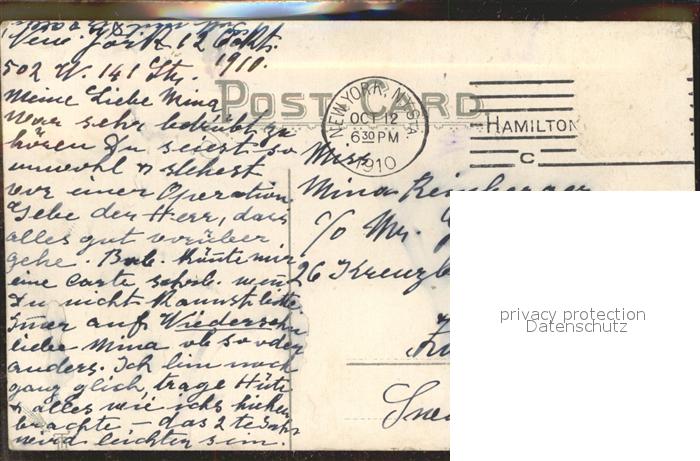 New York 12 Oct.
502 W. 141 Str. 1910.
Meine Liebe Mina
War sehr betrübt zu
hören Du seiest so
unwohl & stehest
vor einer Operation.
Gebe der Herr, dass
alles gut vorüber
gehe. Bab. könnte mir
eine Carte schrb. wenn
Du nicht kannst, bitte.
auf Wiedersehn
liebe Mina ob so oder
anders. Ich bin noch
ganz glich, trage Hüte
& alles wie ichs hieher
brachte – das 2te Jahr
wird leichter sein.
POST CARD
NEW YORK, N.Y. STA.
OCT 12
6 30 PM
1910
HAMILTON
C
Miss
Mina
c/o Mr.
26 Kreuzb
privacy protection
Datenschutz